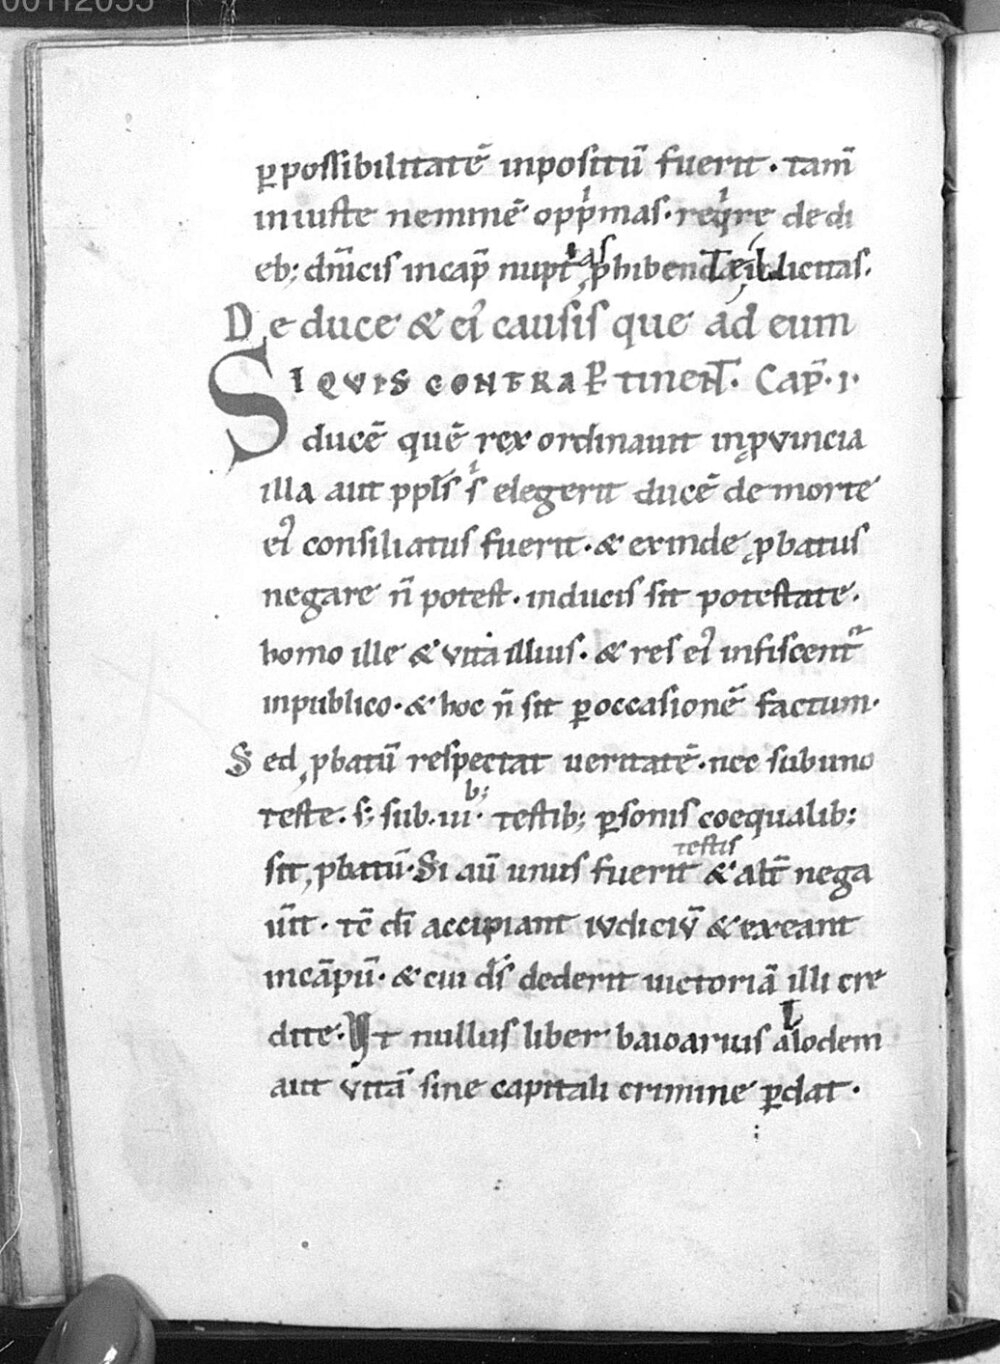 ꝑpossibilitatē inpositū fuerit · tam̄
iniuste neminē oppͥmas · reqͥre de di
eb; dn̄icis incap̄ nupt as ꝓhibend licitas.
De duce & ei᾿ causis que ad eum
SI QVIS CONTRA ꝑtineNT · Cap̄ · i ·
ducē quē rex ordinauit inꝓvincia
illa aut ppl̄s sͥ elegerit ducē de morte
ei᾿ consiliatus fuerit · & exinde ꝓbatus
negare n̄ potest · inducis sit potestate ·
homo ille & vita illius · & res ei᾿ infiscent᷑
inpublico · & hoc n̄ sit ꝑoccasionē factum ·
Sed ꝓbatū respectat ueritatē · nec sub uno
teste · s; sub · iii b; · testib; ꝑsonis coequalib;
sit ꝓbatū · Si aū unus fuerit testis & alt̄ nega
ūit · tc̄ dī accipiant iudiciū & exeant
incāpū · & cui ds̄ dederit uictoriā illi cre
dite · Vt nullus liber baioarius alodem
aut vitā sine capitali crimine ꝑdat ·